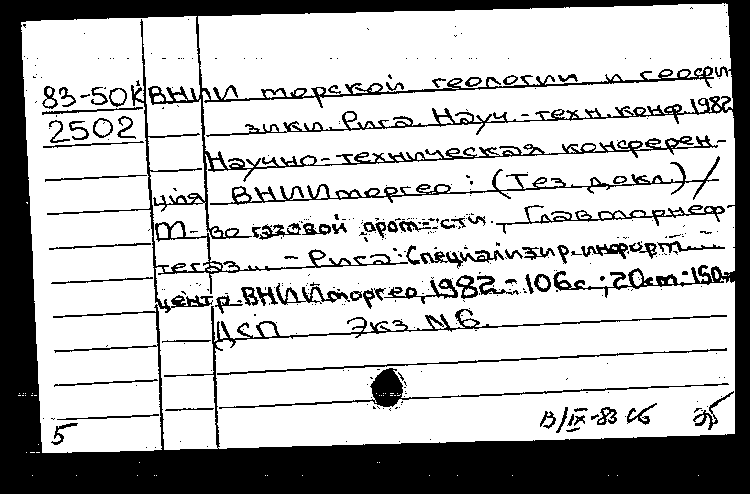 83-50К ВНИИ морской геологии и геофи-
2502 зики. Рига. Науч.-техн. конф. 1982
Научно-техническая конферен-
ция ВНИИморгео : (Тез. докл.) /
М-во газовой пром-сти, Главморнеф-
тегаз... - Рига : Специализир. информ. ...
центр ВНИИморгео, 1982. - 106 с. ; 20 см. - 150
ДСП Экз. N 6.
5
В/IX-83 Сб